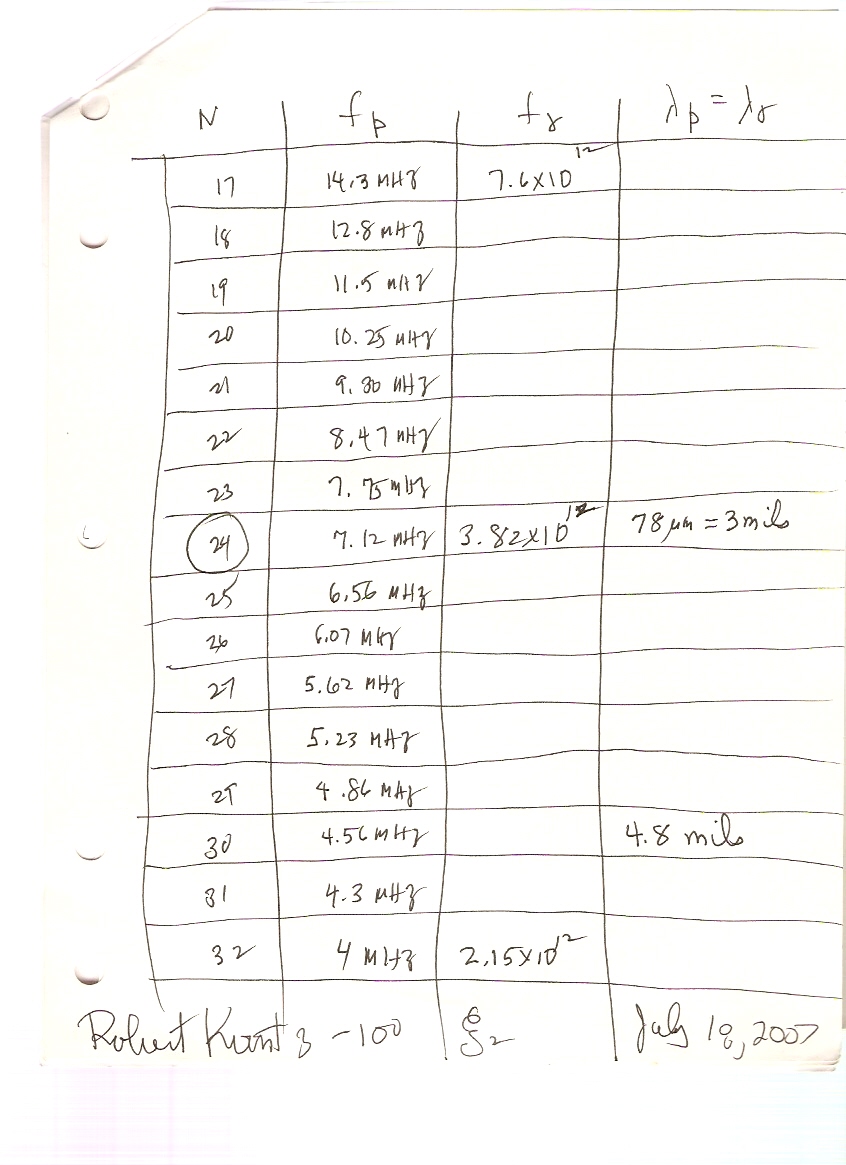 N fp fγ λp = λγ
17 14.3 MHz 7.6X10^12
18 12.8 MHz
19 11.5 MHz
20 10.25 MHz
21 9.30 MHz
22 8.47 MHz
23 7.75 MHz
24 7.12 MHz 3.82X10^12 78 μm = 3 mils
25 6.56 MHz
26 6.07 MHz
27 5.62 MHz
28 5.23 MHz
29 4.86 MHz
30 4.56 MHz 4.8 mils
31 4.3 MHz
32 4 MHz 2.15X10^12
Robert -100 July 18, 2007